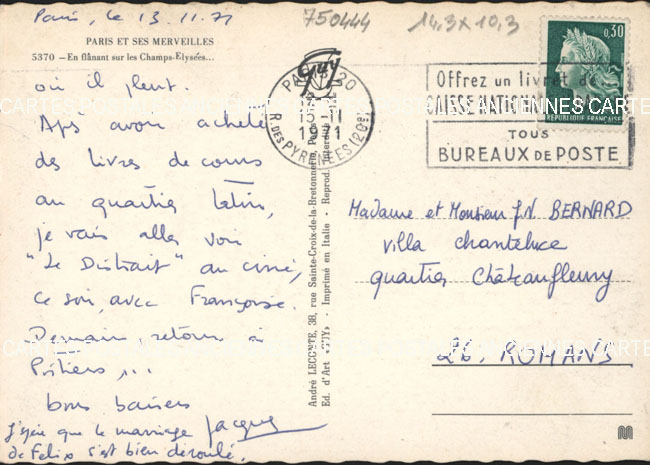 Paris, le 13.11.71
750444
14,3x10,3
PARIS ET SES MERVEILLES
5370 - En flânant sur les Champs-Elysées...
où il pleut.
Aps avoir acheté
des livres de cours
au quartier latin,
je vais aller voir
"Le Distrait" au ciné,
ce soir, avec Françoise.
Demain retour à
Poitiers...
bons baisers
Jacques
J'espère que le mariage
de Felix s'est bien déroulé.
Guy
PARIS 20
13-11
1971
R. DES PYRENEES (20e)
Offrez un livret de
TOUS
BUREAUX DE POSTE
0,30
REPUBLIQUE FRANÇAISE
André LECONTE, 38, rue Sainte-Croix-de-la-Bretonnerie, Paris
Ed. d'Art "GUY" - Imprimé en Italie - Reprod. interdite
Madame et Monsieur J.N. BERNARD
villa chanteluce
quartier Châteaufleury
26. ROMANS
CARTES POSTALES ANCIENNES